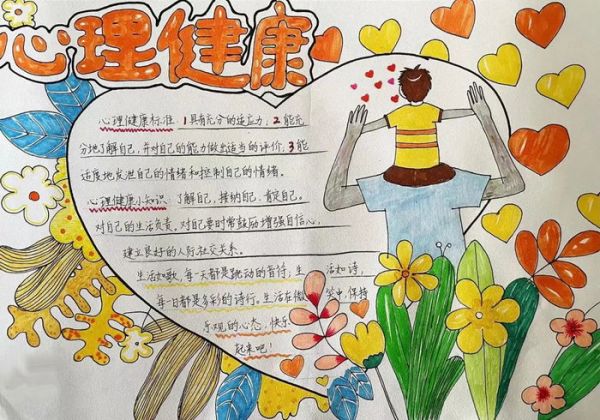 心理健康
心理健康标准：1具有充分的适应力，2能充
分地了解自己，并对自己的能力做出适当的评价，3能
适度地发泄自己的情绪和控制自己的情绪。
心理健康小知识：了解自己，接纳自己，肯定自己。
对自己的生活负责。对自己要时常鼓励增强自信心，
建立良好的人际社交关系。
生活如歌，每一天都是跳动的音符，生活如诗，
每一日都是多彩的诗行。生活在微笑中，保持
乐观的心态，快乐
起来吧！